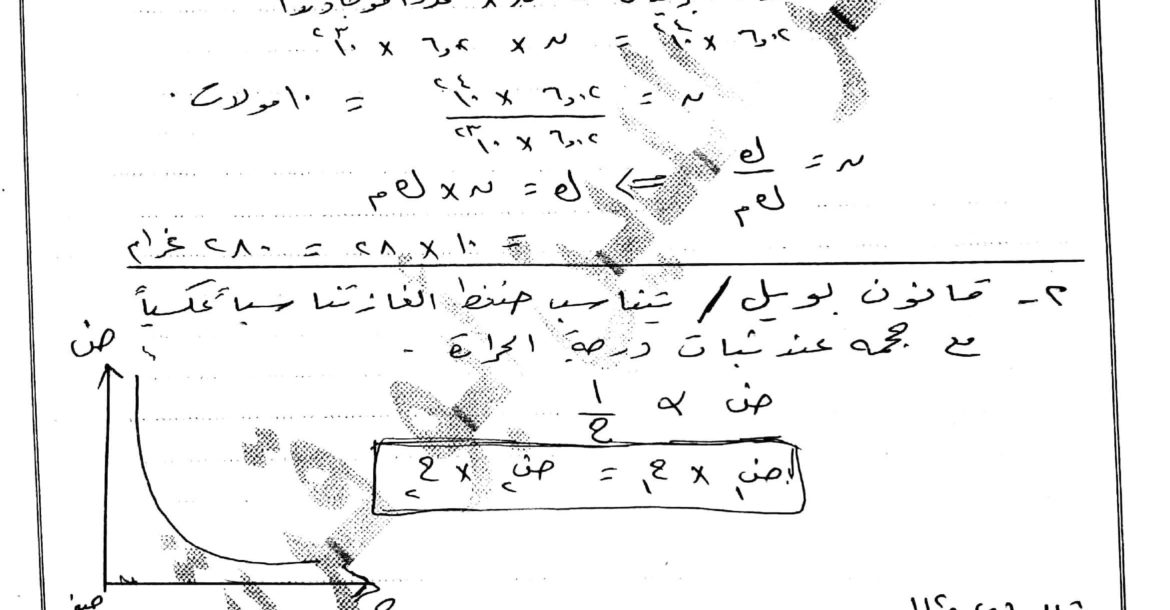 ٦,٠٢ × ١٠^٢٤ = ن × ٦,٠٢ × ١٠^٢٣
ن = ٦,٠٢ × ١٠^٢٤ / ٦,٠٢ × ١٠^٢٣ = ١٠ مولات .
ن = ك / ك م ⇐ ك = ن × ك م
= ١٠ × ٢٨ = ٢٨٠ غرام
٢- قانون بويل / يتناسب ضغط الغاز تناسباً عكسياً
مع حجمه عند ثبات درجة الحرارة .
ض
ض ∝ ١ / ح
ض١ × ح١ = ض٢ × ح٢
ح
صفر